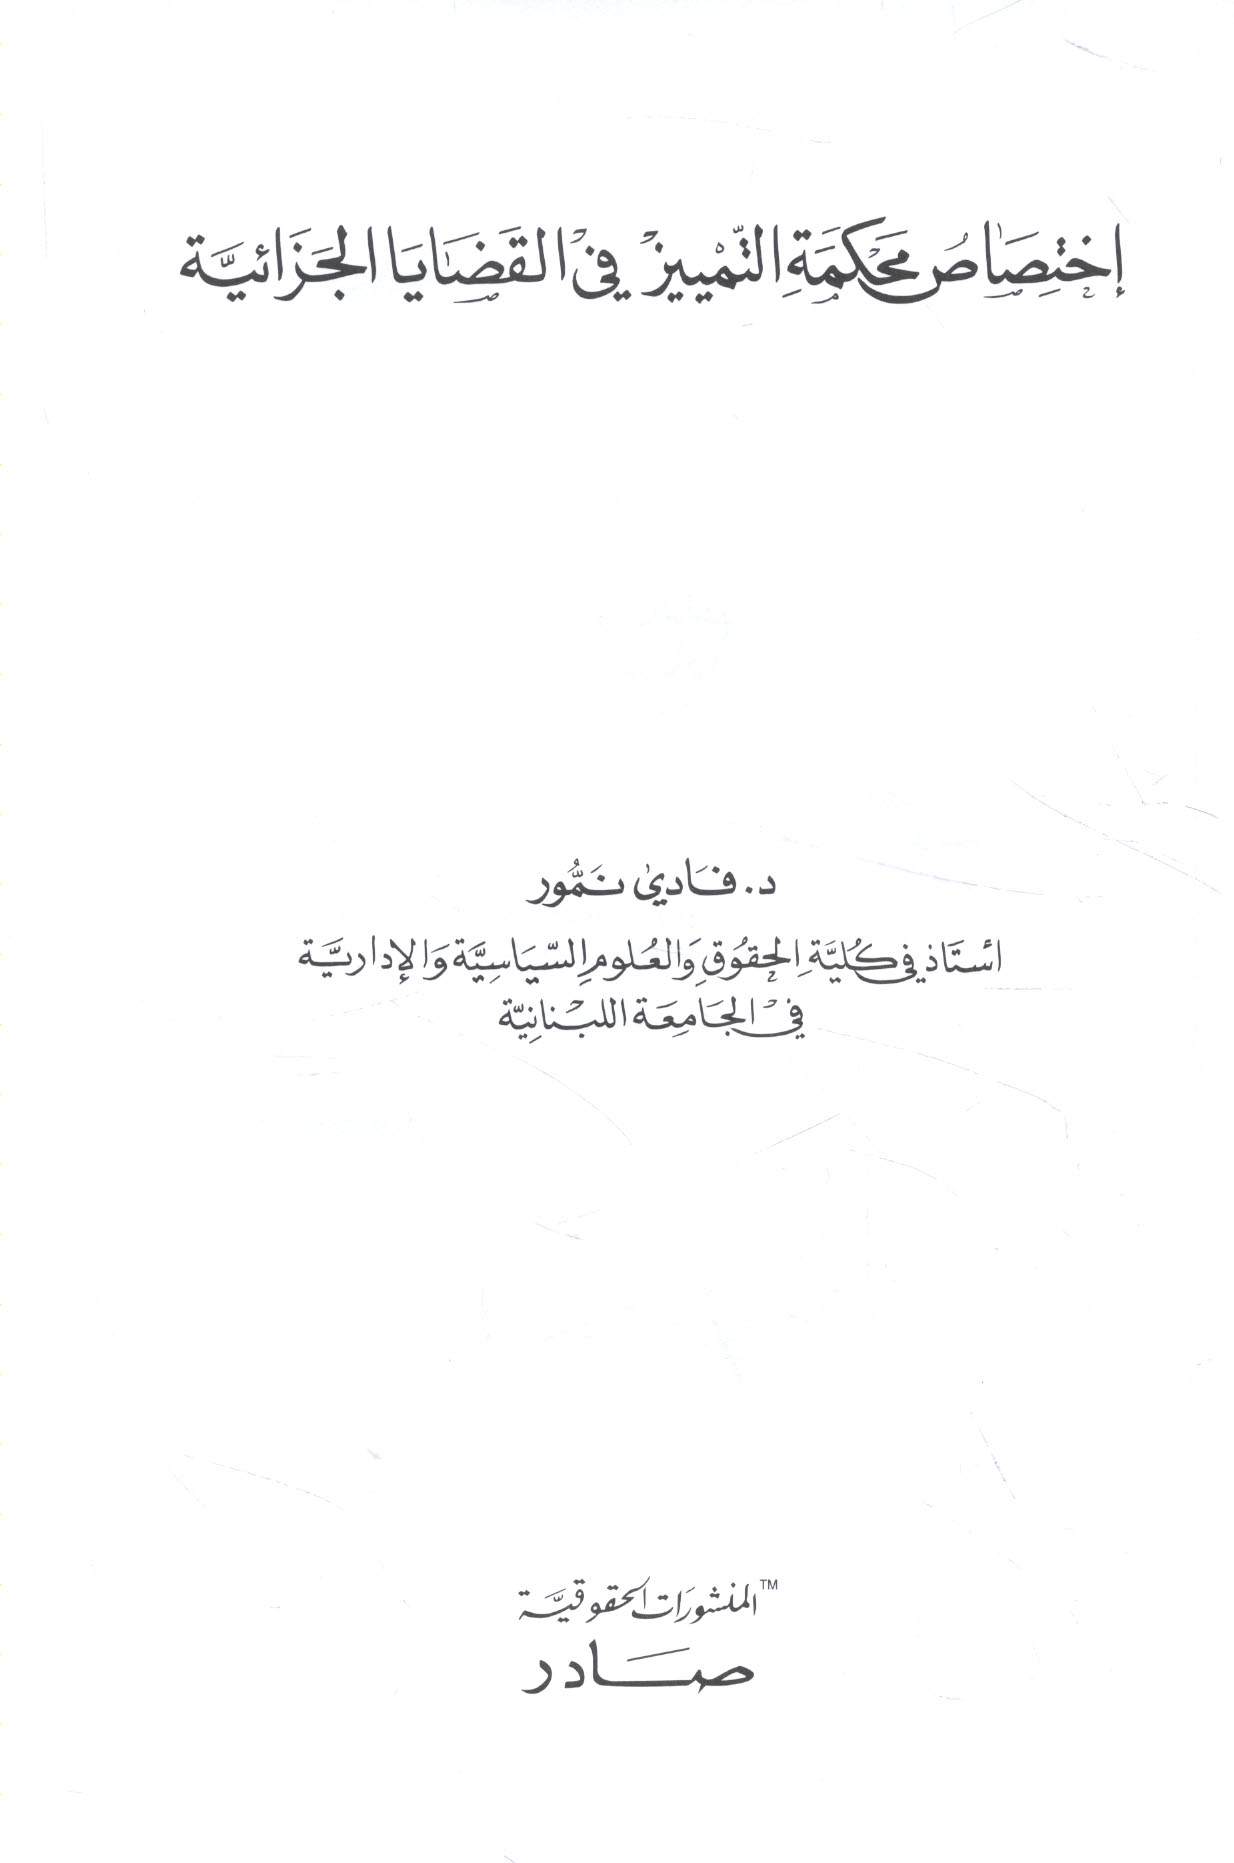 إختصاص محكمة التمييز في القضايا الجزائية
د. فادي نمور
أستاذ في كلية الحقوق والعلوم السياسية والإدارية
في الجامعة اللبنانية
المنشورات الحقوقية™
صادر